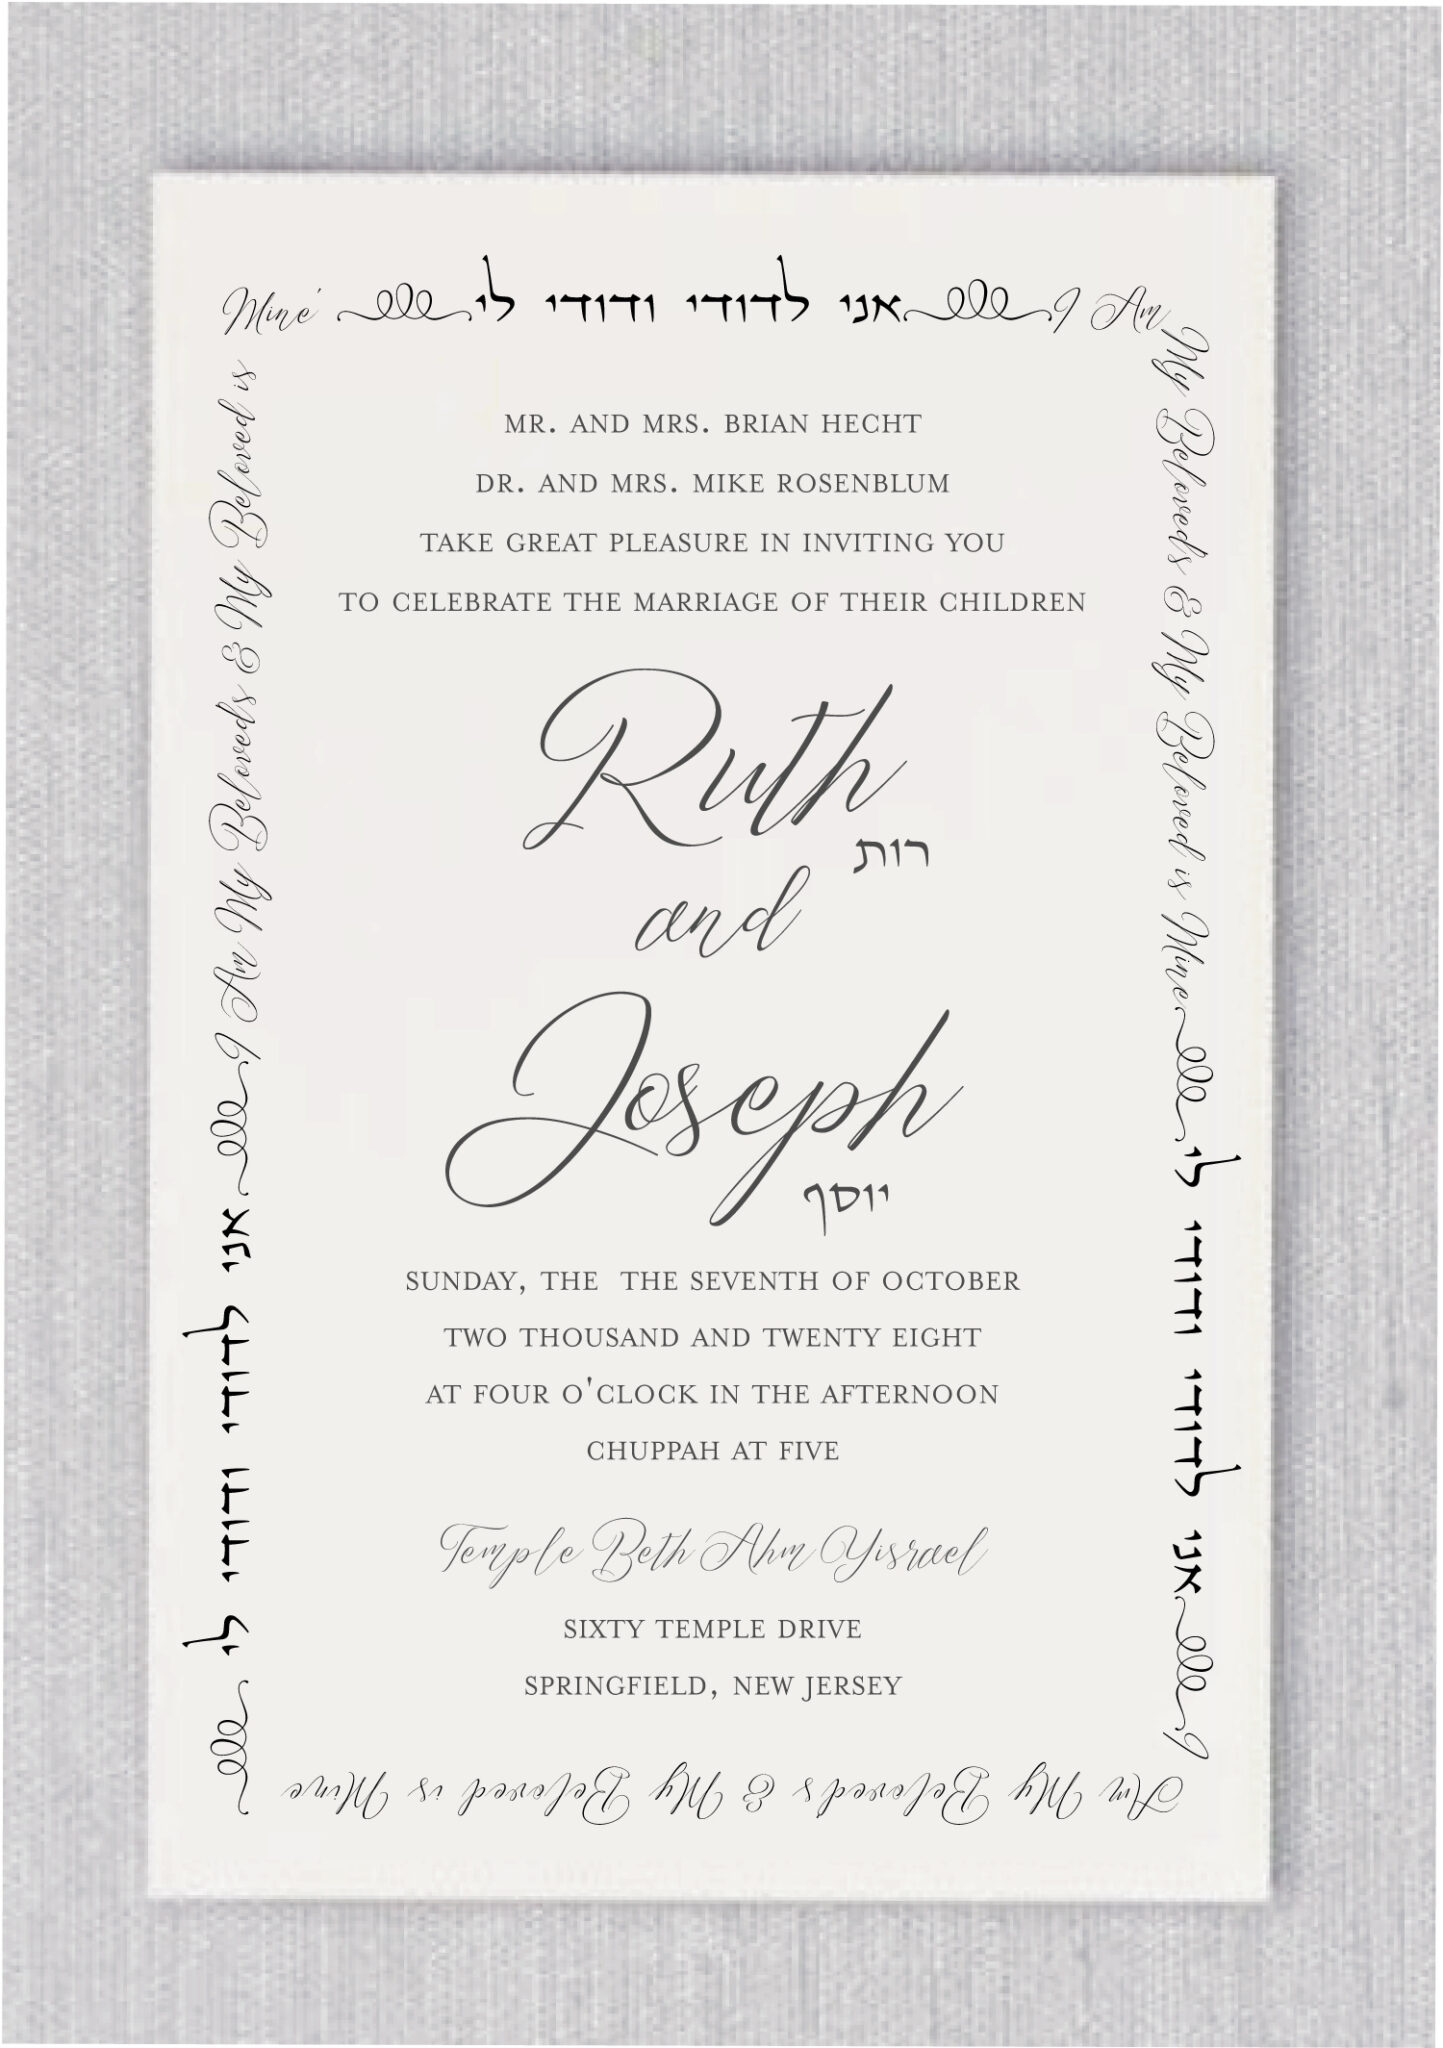 אני לדודי ודודי לי
I Am My Beloved's & My Beloved is Mine
לי ודודי לדודי אני
I Am My Beloved's & My Beloved is Mine
אני לדודי ודודי לי
I Am My Beloveds & My Beloved is Mine'
MR. AND MRS. BRIAN HECHT
DR. AND MRS. MIKE ROSENBLUM
TAKE GREAT PLEASURE IN INVITING YOU
TO CELEBRATE THE MARRIAGE OF THEIR CHILDREN
Ruth
רות
and
Joseph
יוסף
SUNDAY, THE THE SEVENTH OF OCTOBER
TWO THOUSAND AND TWENTY EIGHT
AT FOUR O'CLOCK IN THE AFTERNOON
CHUPPAH AT FIVE
Temple Beth Ahm Yisrael
SIXTY TEMPLE DRIVE
SPRINGFIELD, NEW JERSEY